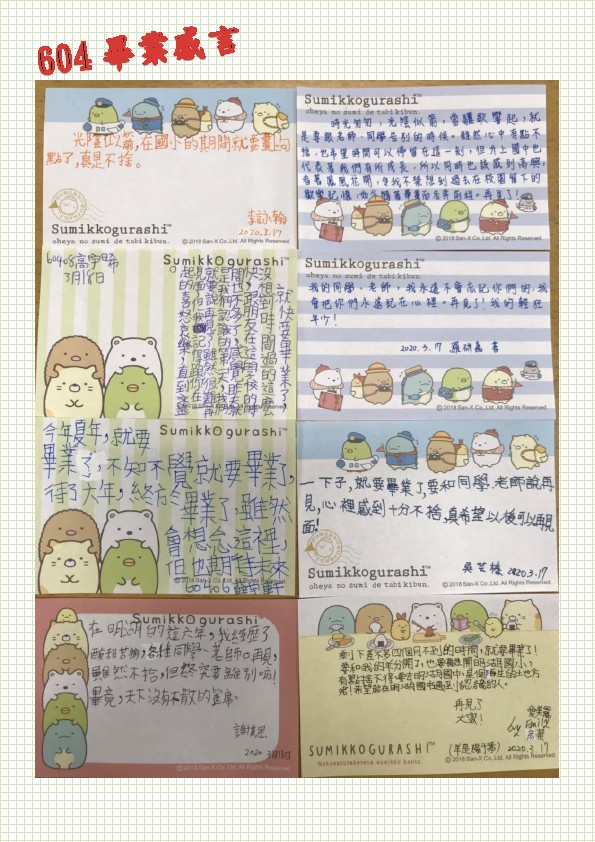 604 畢業感言
光陰似箭，在國小的期間就要畫上句
點了，真是不捨。
2020.3.17
Sumikkogurashi™
oheya no sumi de tabikibun.
©2018 San-X Co.,Ltd. All Rights Reserved.
Sumikkogurashi™
oheya no sumi de tabikibun
時光匆匆，光陰似箭，當驪歌響起，就
是要跟老師、同學告別的時候。雖然心中有點不
捨，也希望時間可以停留在這一刻，但升上國中也
代表著我們有所成長，所以同時也該感到高興，
看著鳳凰花開，令我不禁想到過去在校園留下的
歡樂記憶，
再見了！
©2018 San-X Co.,Ltd. All Rights Reserved.
Sumikkogurashi™
60408高宇晞
3月18日
就快要畢業了，
沒想到時間過的這麼
快，跟朋友在這學校的時
間也不多了，
©2018 San-X Co.,Ltd. All Rights Reserved.
Sumikkogurashi™
oheya no sumi de tabikibun
我的同學、老師，我永遠不會忘記你們的，我
會把你們永遠記在心裡。再見了！我的輕狂
年少！
2020.3.17 羅研嘉 書
©2018 San-X Co.,Ltd. All Rights Reserved.
Sumikkogurashi™
今年夏年，就要
畢業了，不知不覺就要畢業了，
待了六年，終於畢業了，雖然
會想念這裡，
但也期待未來
©2018 San-X Co.,Ltd. All Rights Reserved.
一下子，就要畢業了，要和同學、老師說再
見，心裡感到十分不捨，真希望以後可以再見
面！
2020.3.17
Sumikkogurashi™
oheya no sumi de tabikibun.
©2018 San-X Co.,Ltd. All Rights Reserved.
Sumikkogurashi™
在明湖的這六年，我經歷了
酸甜苦辣，各種同學、老師。再見，
雖然不捨，但終究要離別啊！
畢竟，天下沒有不散的筵席。
2020 3月18日
©2018 San-X Co.,Ltd. All Rights Reserved.
剩下差不多四個月不到的時間，就要畢業了！
要和我的羊分開了，也要離開明湖國小，
有點捨不得，
呢！希望能在明湖國中遇到認識的人。
再見了
大家！
by Emily
(羊是楊千蒂) 2020.3.17
SUMIKKOGURASHI™
Nokosaretabetena sumikko bento.
©2018 San-X Co.,Ltd. All Rights Reserved.